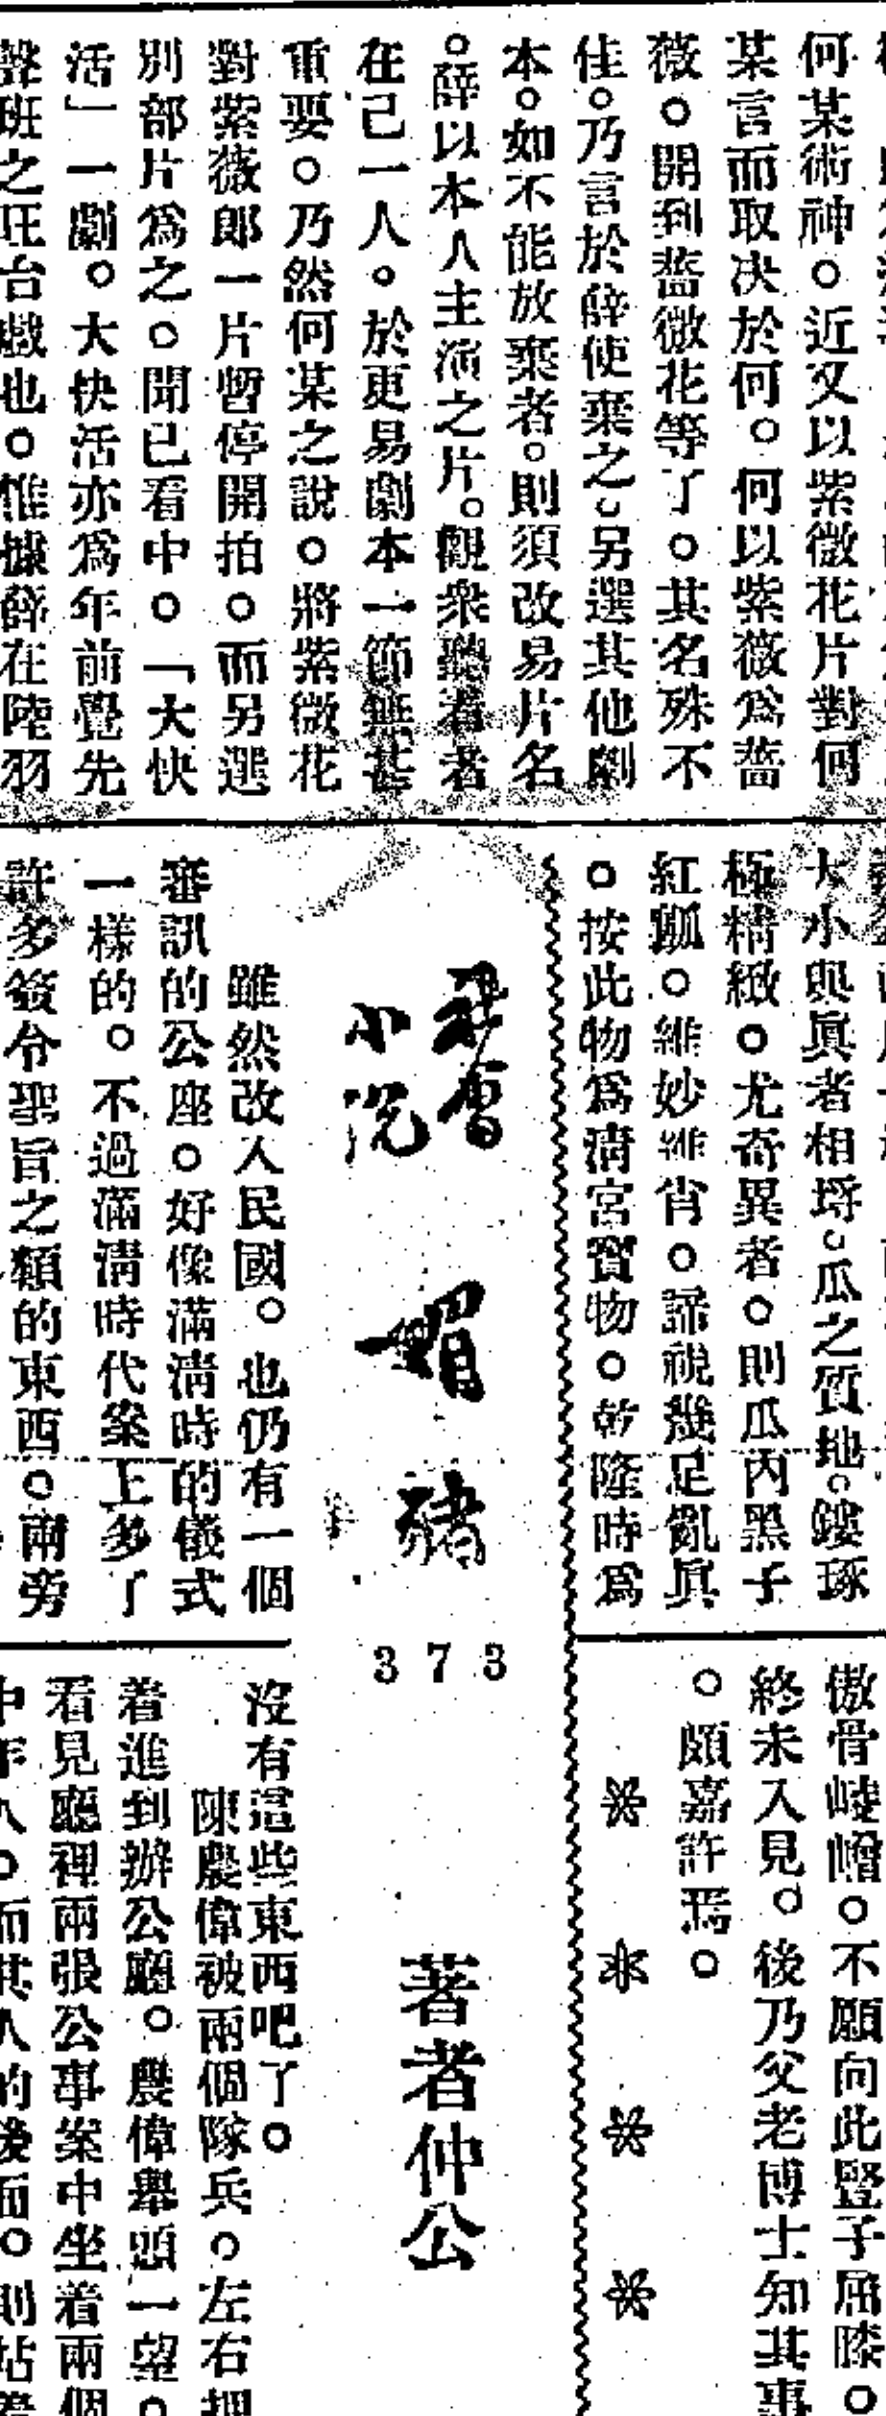 何某術神。近又以紫微花片對何
某言而取决於何。何以紫薇爲薔
薇。開到薔微花等了。其名殊不
佳。乃言於薛使棄之。另選其他劇
本。如不能放棄者。則須改易片名
。薛以本人主演之片。觀衆聽者者
在己一人。於更易劇本一節無甚
重要。乃然何某之說。將紫微花
對紫薇郎一片暫停開拍。而另選
別部片爲之。聞已看中。「大快
活」一劇。大快活亦爲年前覺先
聲班之旺台戲也。惟據薛在陸羽
大小與眞者相埒。瓜之質地。鏤琢
極精緻。尤奇異者。則瓜內黑子
紅瓤。維妙維肖。諦視幾足亂眞
。按此物爲清宮寶物。乾隆時爲
傲骨崚嶒。不願向此豎子屈膝。
終未入見。後乃父老博士知其事
。頗嘉許焉。
社會
小說
一
猪
373
著者仲公
雖然改入民國。也仍有一個
審訊的公座。好像滿清時的儀式
一樣的。不過滿清時代案上多了
許多簽令聖旨之類的東西。兩旁
沒有這些東西吧了。
陳農偉被兩個隊兵。左右押
着進到辦公廳。農偉舉頭一望。
看見廳裡兩張公事案中坐着兩個
中年人。而其人的後面。則站着